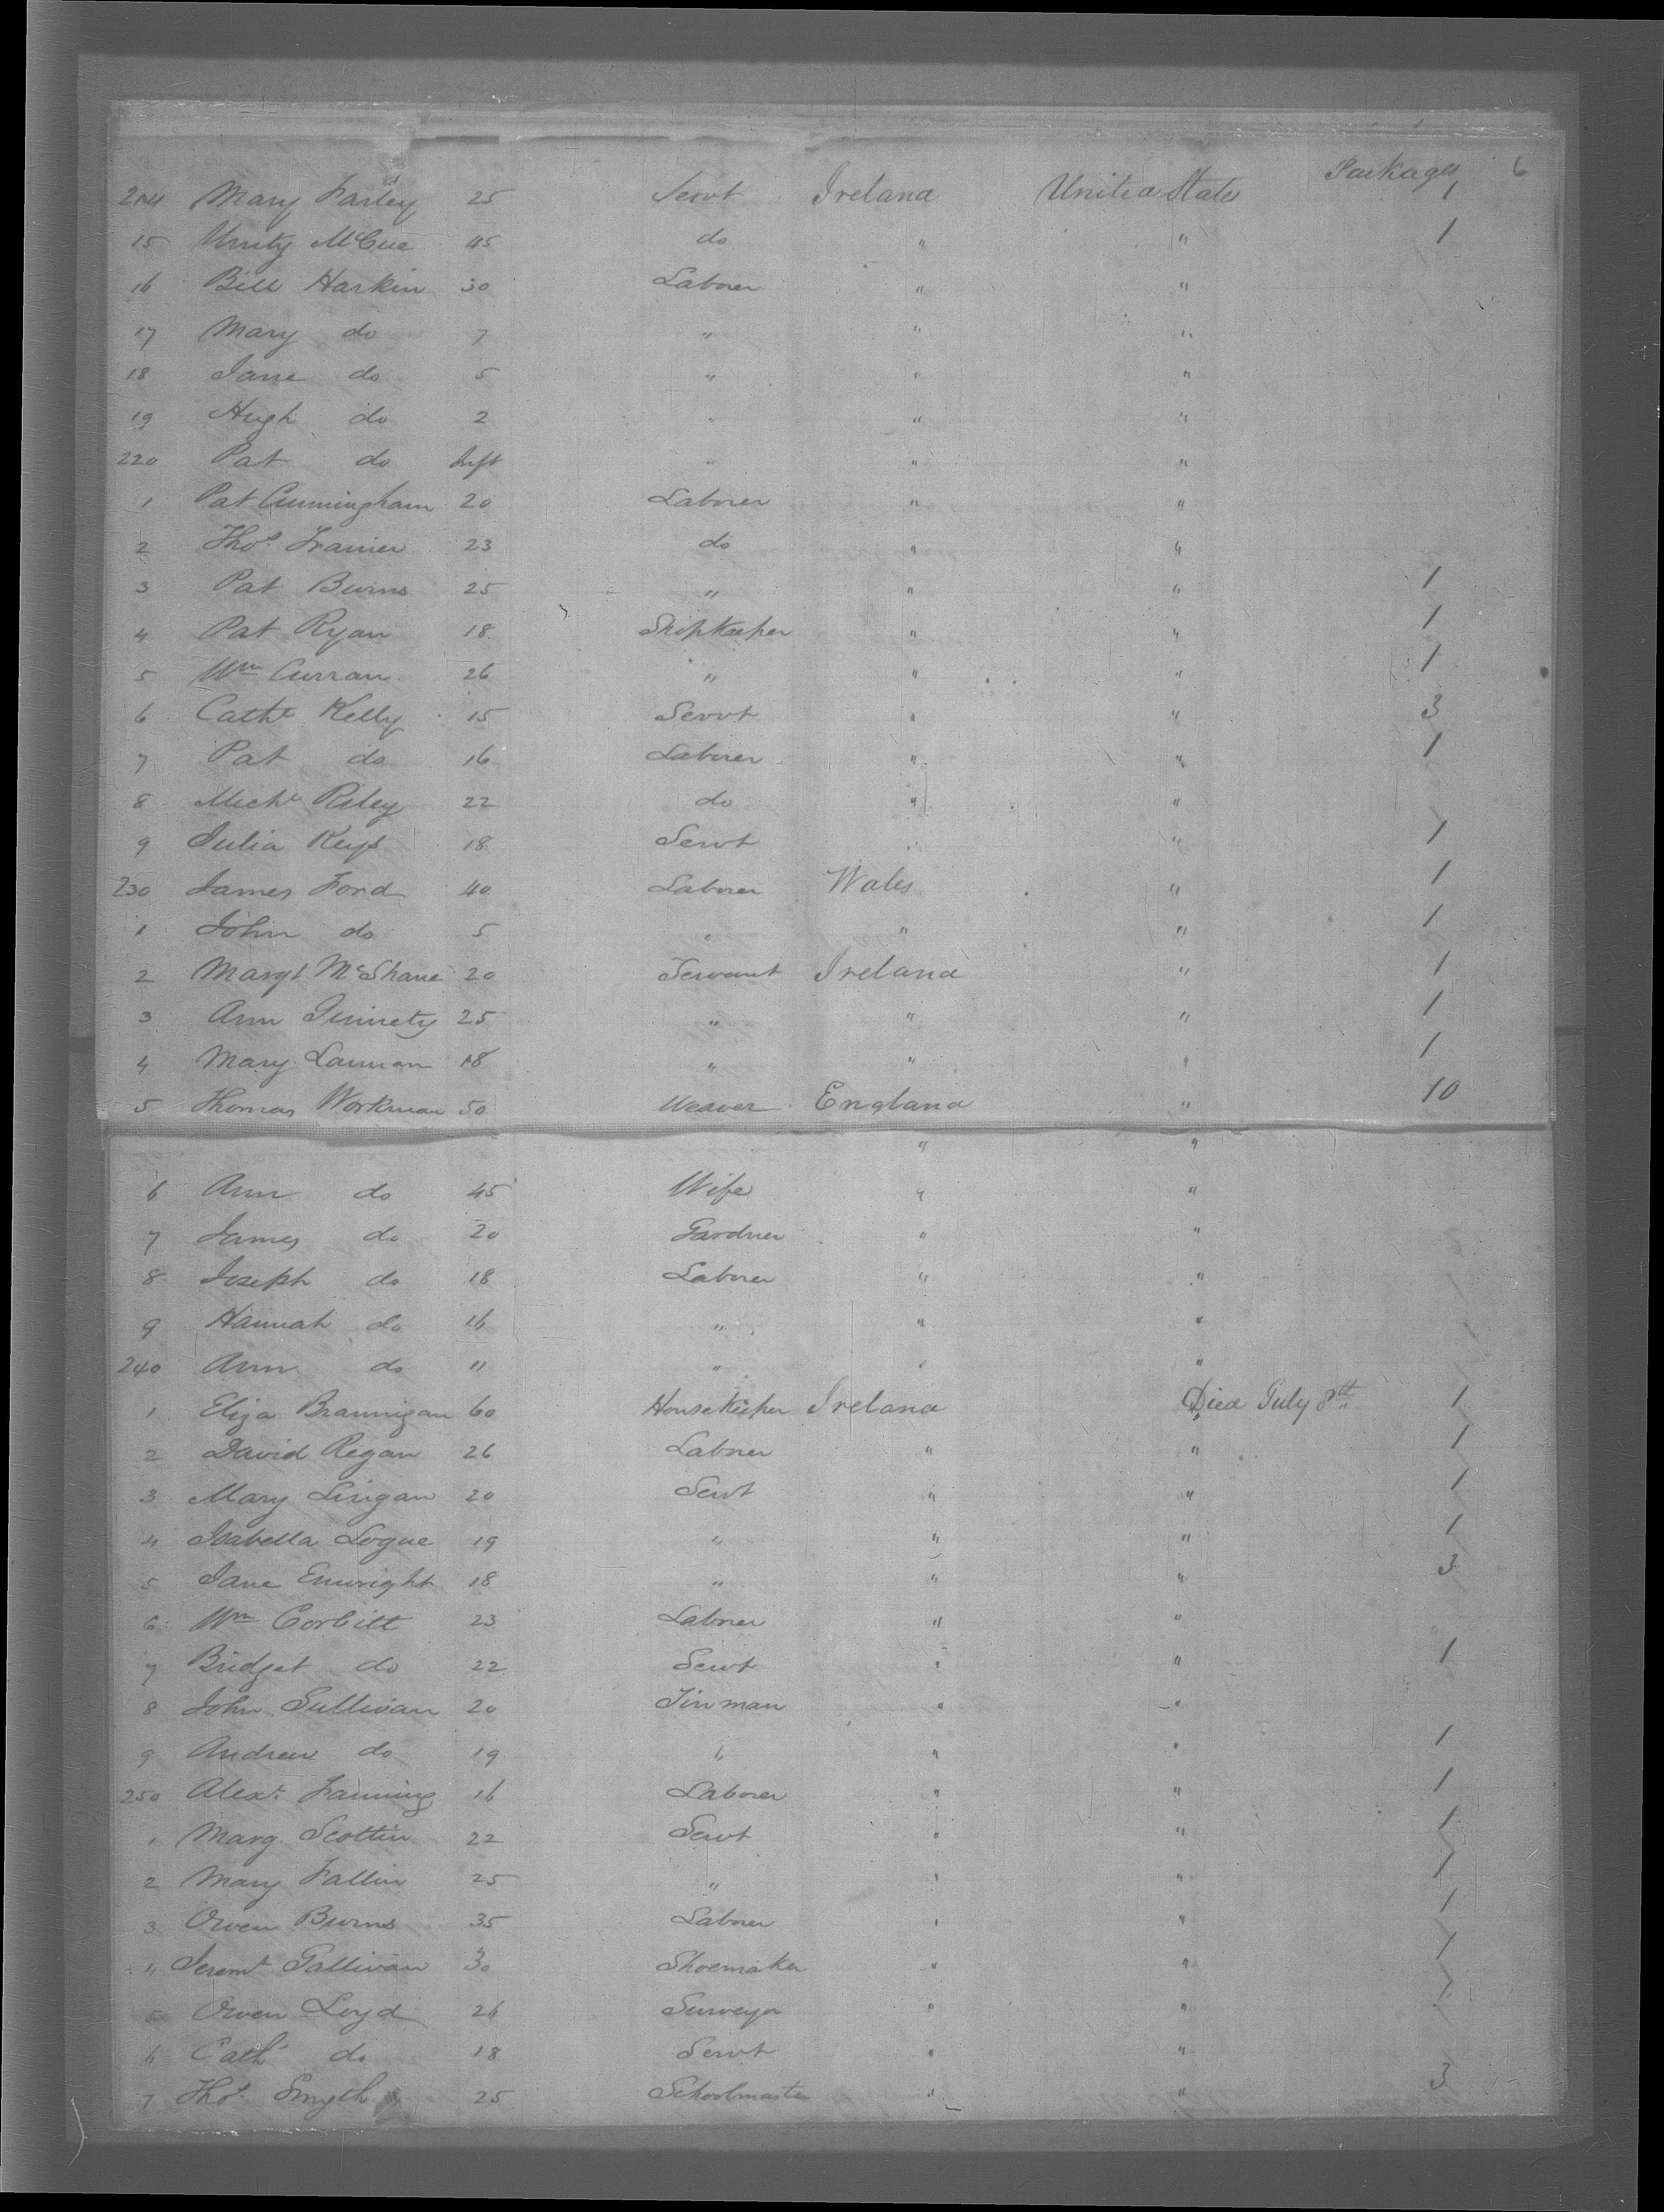 Packages 6
214 Mary Farley 25 Servt Ireland United States 1
15 Unity McCue 45 do " " 1
16 Bill Harkin 30 Laborer " "
17 Mary do 7 " " "
18 Jane do 5 " " "
19 Hugh do 2 " " "
220 Pat do Inft " " "
1 Pat Cunningham 20 Laborer " "
2 Thos. 23 do " "
3 Pat Burns 25 " " " 1
4 Pat Ryan 18 Shopkeeper " " 1
5 Wm Curran 26 " " " 1
6 Cathe Kelly 15 Servt " " 3
7 Pat do 16 Laborer " " 1
8 Michl Riley 22 do " "
9 Julia Keys 18 Servt " " 1
230 James Ford 40 Laborer Wales " 1
1 John do 5 " " " 1
2 Margt McShane 20 Servant Ireland " 1
3 Ann 25 " " " 1
4 Mary Lannon 18 " " " 1
5 Thomas Workman 50 Weaver England " 10
" "
6 Ann do 45 Wife " "
7 James do 20 Gardner " "
8 Joseph do 18 Laborer " "
9 Hannah do 16 " " "
240 Ann do 11 " " "
1 Eliza Brannigan 60 Housekeeper Ireland Died July 8th 1
2 David Regan 26 Laborer " " 1
3 Mary Linigan 20 Servt " " 1
4 Isabella Logue 19 " " " 1
5 Jane Enwright 18 " " " 3
6 Wm Corbitt 23 Laborer " "
7 Bridget do 22 Servt " " 1
8 John Sullivan 20 Tinman " "
9 Andrew do 19 " " " 1
250 Alexr. Fanning 16 Laborer " " 1
1 Marg. Scottin 22 Servt " " 1
2 Mary Fallin 25 " " " 1
3 Owen Burns 35 Laborer " " 1
4 Jeremh Gallivan 30 Shoemaker " " 1
5 Owen Loyd 26 Surveyor " " 1
6 Cath do 18 Servt " "
7 Thos. Smyth 25 Schoolmaster " " 3